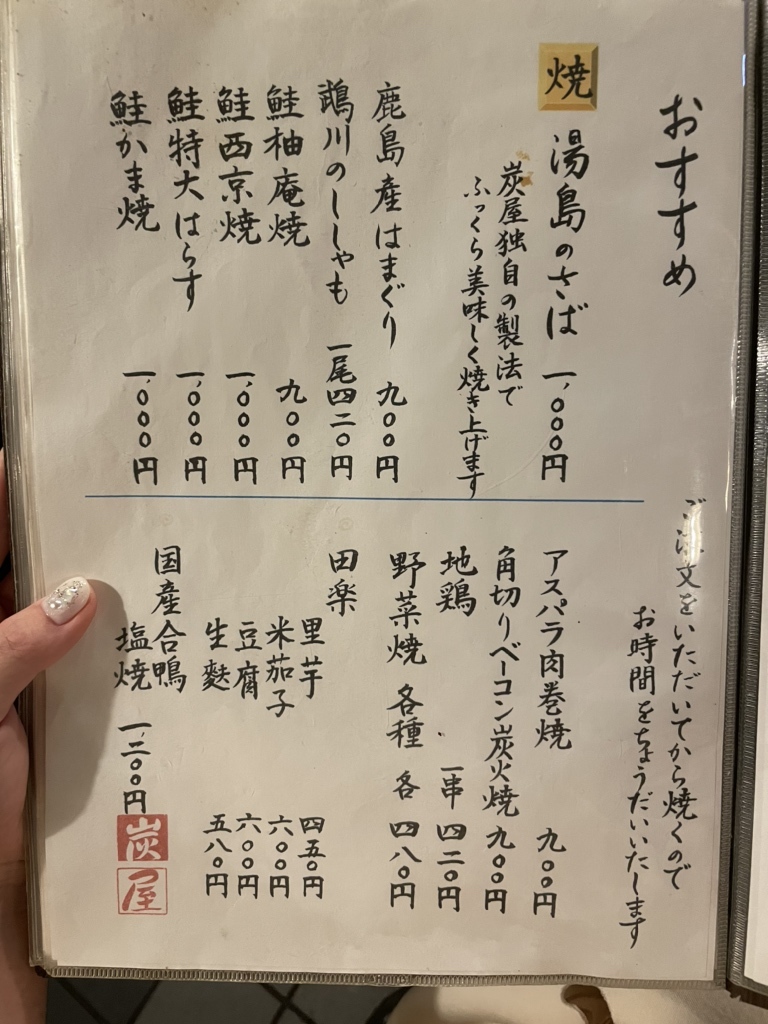 おすすめ
焼
湯島のさば 一、〇〇〇円
炭屋独自の製法で
ふっくら美味しく焼き上げます
鹿島産はまぐり 九〇〇円
鵡川のししゃも 一尾四二〇円
鮭柚庵焼 九〇〇円
鮭西京焼 一、〇〇〇円
鮭特大はらす 一、〇〇〇円
鮭かま焼 一、〇〇〇円
ご注文をいただいてから焼くので
お時間をちょうだいいたします
アスパラ肉巻焼 九〇〇円
角切りベーコン炭火焼 九〇〇円
地鶏 一串 四二〇円
野菜焼 各種 各 四八〇円
田楽
里芋 四五〇円
米茄子 六〇〇円
豆腐 六〇〇円
生麩 五八〇円
国産合鴨
塩焼 一、二〇〇円
炭屋